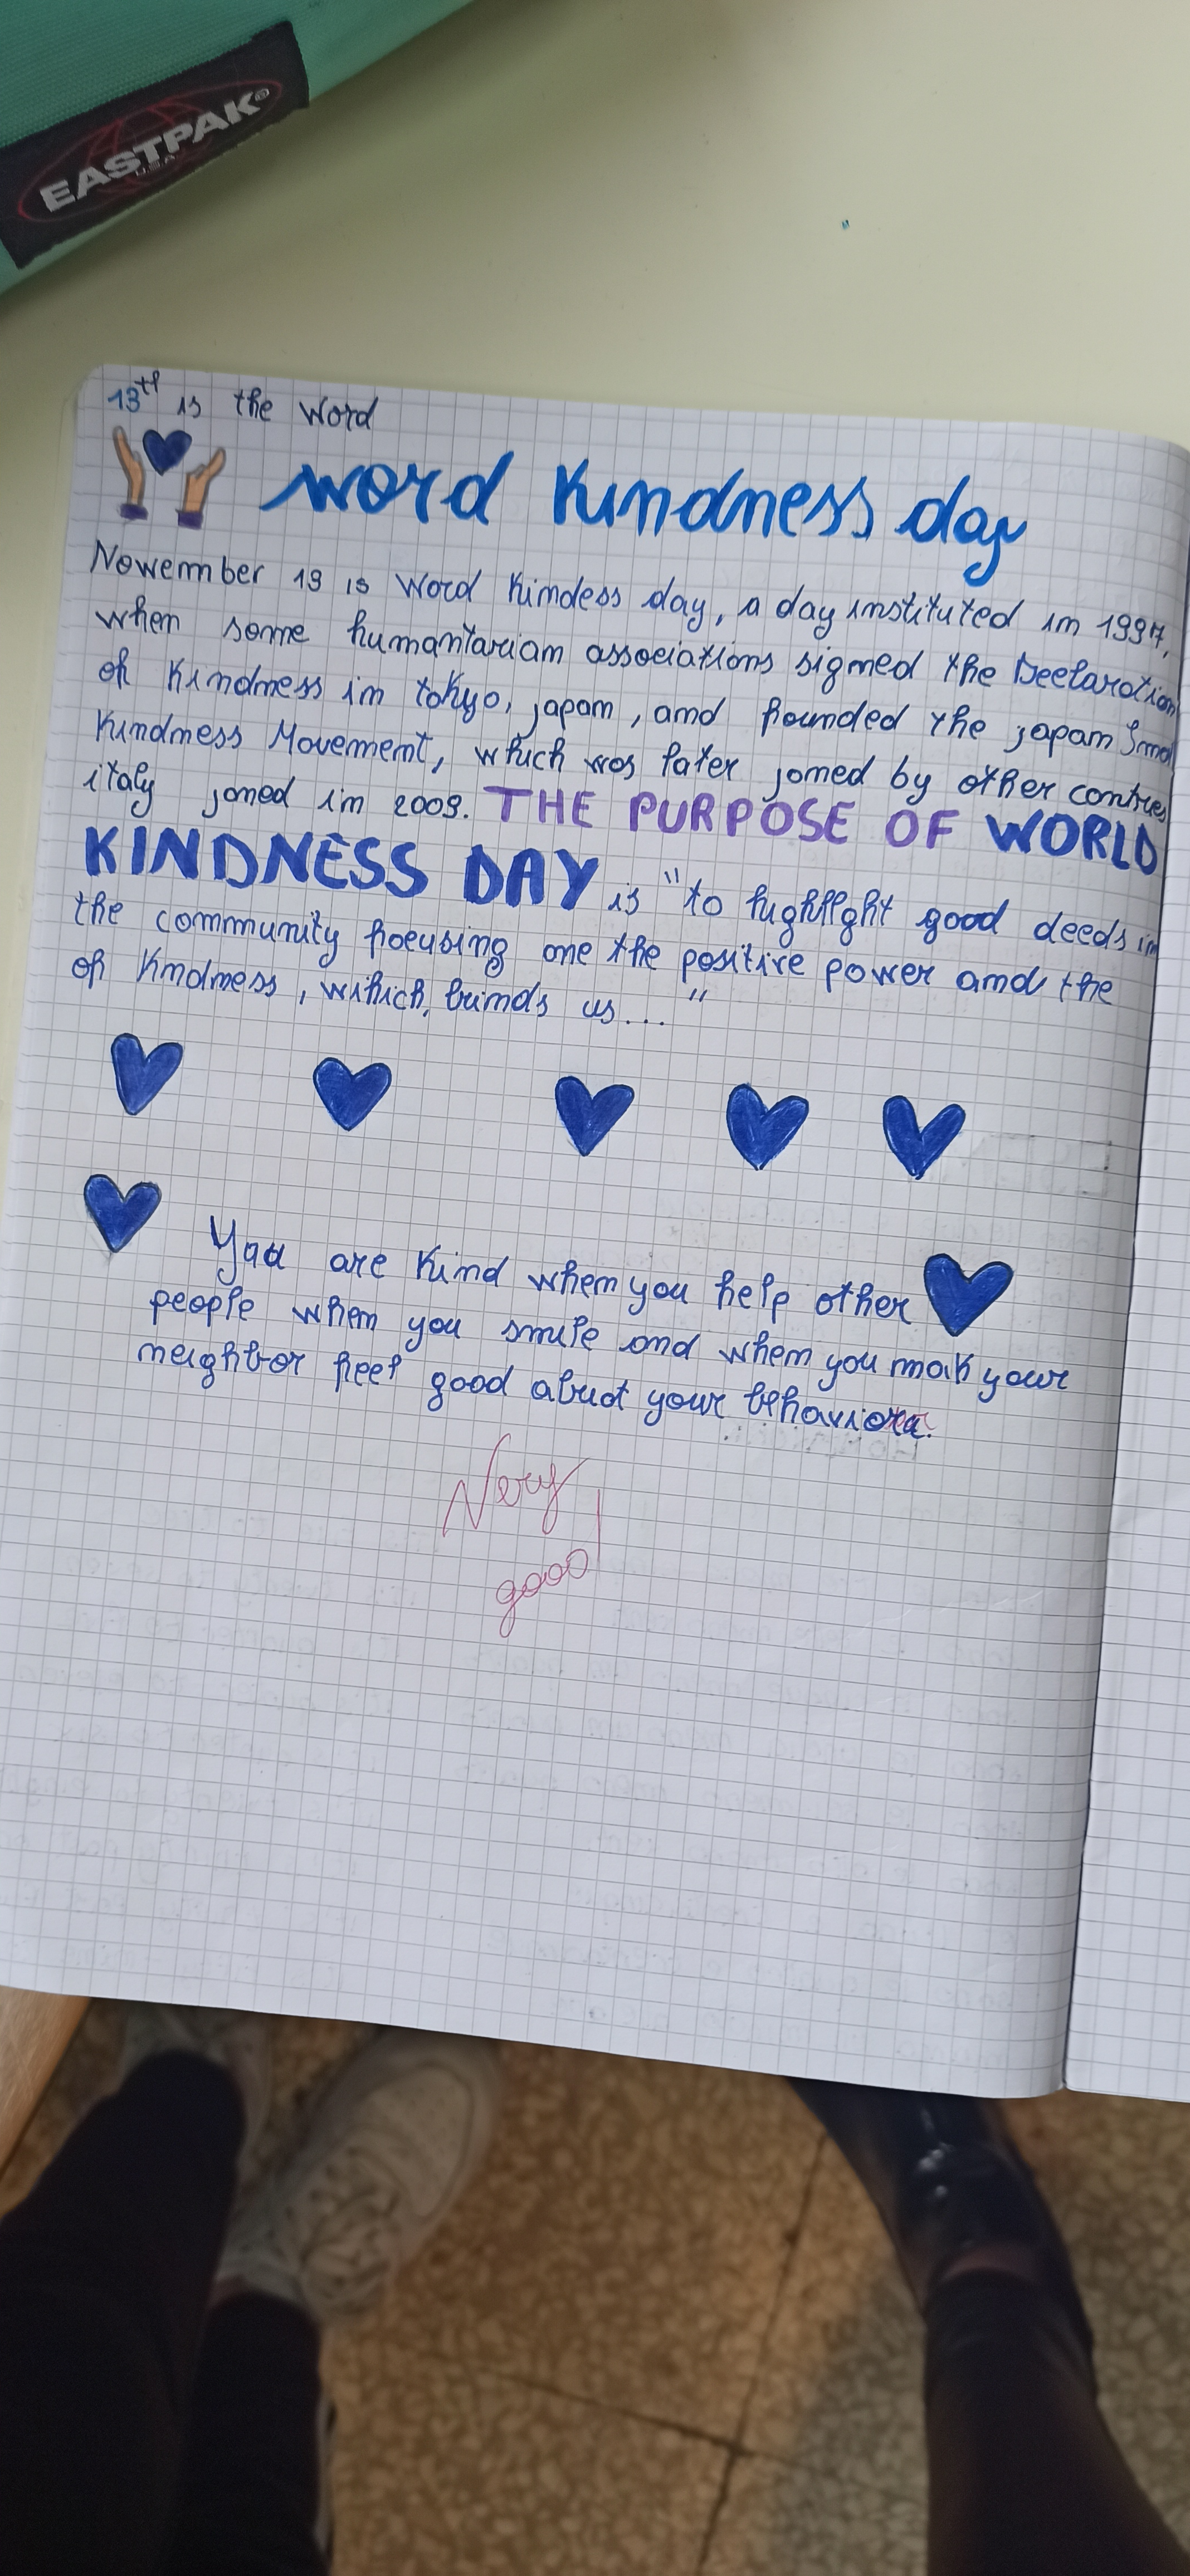 EASTPAK®
USA
13th is the Word
word Kindness day
Nowember 13 is Word Kindess day, a day instituted in 1997,
when some humanitariam associations signed the Declaration
of Kindness in tokyo, japan, and founded the japan Small
Kindness Movement, which was later joined by other contries
italy joned in 2009. THE PURPOSE OF WORLD
KINDNESS DAY is "to highlight good deeds in
the community focusing one the positive power and the
of Kindness, which, binds us... "
You are kind when you help other
people when you smile and when you mak your
neighbor feel good abuot your behaviora.
Very
good